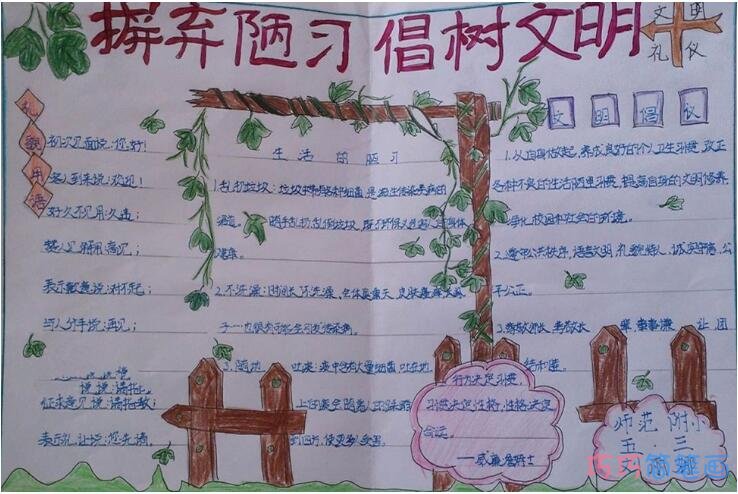 摒弃陋习 倡树文明
文明
礼仪
礼貌用语
初次见面说:你好!
客人到来说:欢迎!
好久不见用:久违;
表示歉意说:对不起;
与人分手说:再见;
征求意见说:请指教;
表示礼让说:您先请,
生活的陋习
1.乱扔垃圾:垃圾中带有各种细菌,是
健康。
2.不洗澡:时间长不洗澡,
3.随地 吐痰:痰中含有大量细菌,吐在地
文明倡议
1.从自身做起,养成良好的个人卫生习惯,改正
各种不良的生活陋习习惯,提高自身的文明修养,
净化校园和社会的环境。
2.遵守公共秩序,语言文明,礼貌待人,诚实守信,公
平公正。
3.尊敬师长,孝敬长 辈,事事谦 让,团
结和睦。
行为决定习惯,
习惯决定性格,性格决定
命运。
——威廉·詹姆士
师范附小
五.三
巧巧简笔画